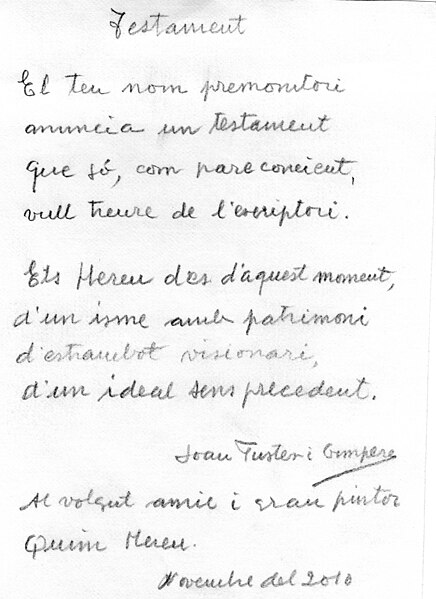 Testament
El teu nom premonitori
anuncia un testament
que jó, com pare concient,
vull treure de l'escriptori.
Ets Hereu des d'aquest moment,
d'un isme amb patrimoni
d'estrambot visionari,
d'un ideal sens precedent.
Joan Fuster i Gimpera
Al volgut amic i gran pintor
Quim Hereu.
Novembre del 2010